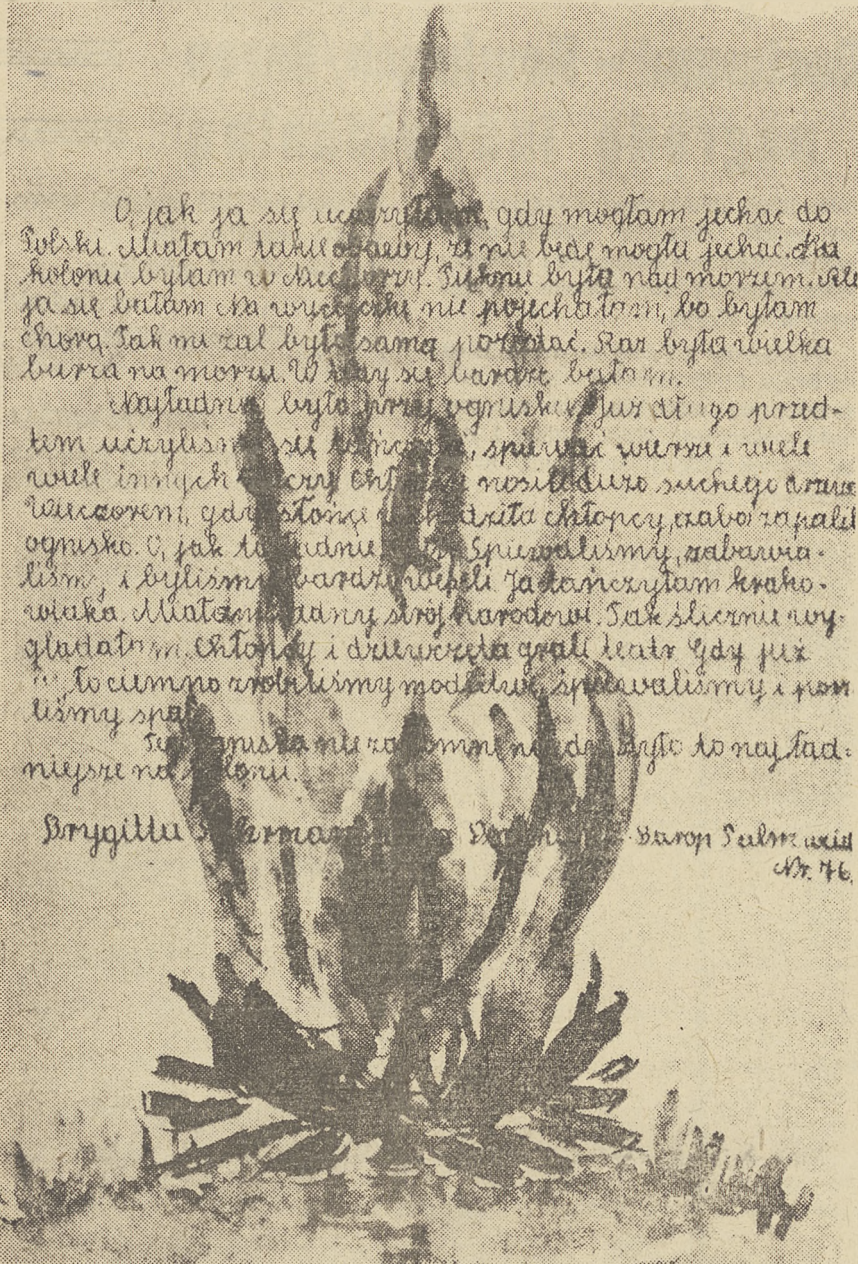 O, jak ja się ucieszyłam, gdy mogłam jechać do
Polski. Miałam takie obawy, że nie będę mogła jechać. Na
kolonii byłam w Niechorzy. Pięknie było nad morzem. Ale
ja się bałam Na wycieczkę nie pojechałam, bo byłam
chora. Tak mi żal było samą pozostać. Raz była wielka
burza na morzu. Wtedy się bardzo bałam.
Najładniej było przy ognisku. Już długo przed-
tem uczyliśmy się tańczyć, śpiewać wiersze i wiele
wiele innych rzeczy chłopcy nosili dużo suchego drzewa
Wieczorem, gdy słońce zachodziło chłopcy zapalili
ognisko. O, jak to ładnie było. Śpiewaliśmy, zabawia-
liśmy i byliśmy bardzo weseli. Ja tańczyłam krako-
wiaka. Miałam ładny strój narodowi. Tak ślicznie wy-
glądałam. Chłopcy i dziewczęta grali teatr. Gdy już
to ciemno zrobiliśmy modlitwę, śpiewaliśmy i posz
liśmy spać
Tego ogniska nie zapomnę nigdy było to najład-
niejsze na kolonii.
Brygitta Barop
Nr. 76.